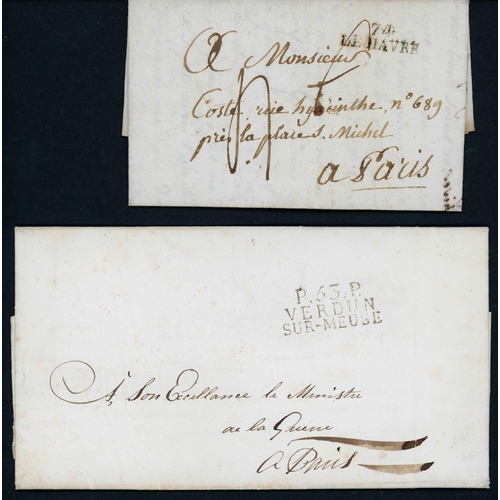 74
LE HAVRE
A Monsieur
Coste, rue hyacinthe, n° 689
près la place S. Michel
a Paris
P.63.P
VERDUN
SUR-MEUSE
A Son Excellance le Ministre
de la Guerre
a Paris